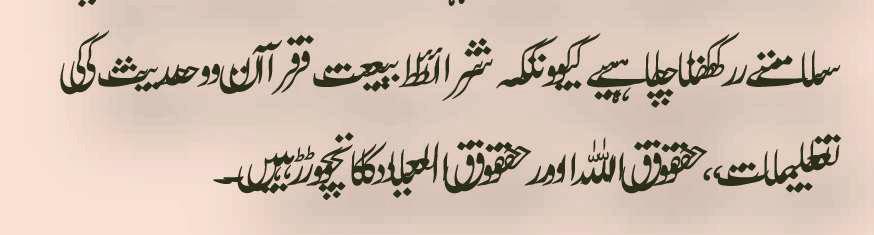 سامنے رکھنا چاہیے کیونکہ شرائط بیعت قرآن و حدیث کی
تعلیمات، حقوق اللہ اور حقوق العباد کا نچوڑ ہیں۔